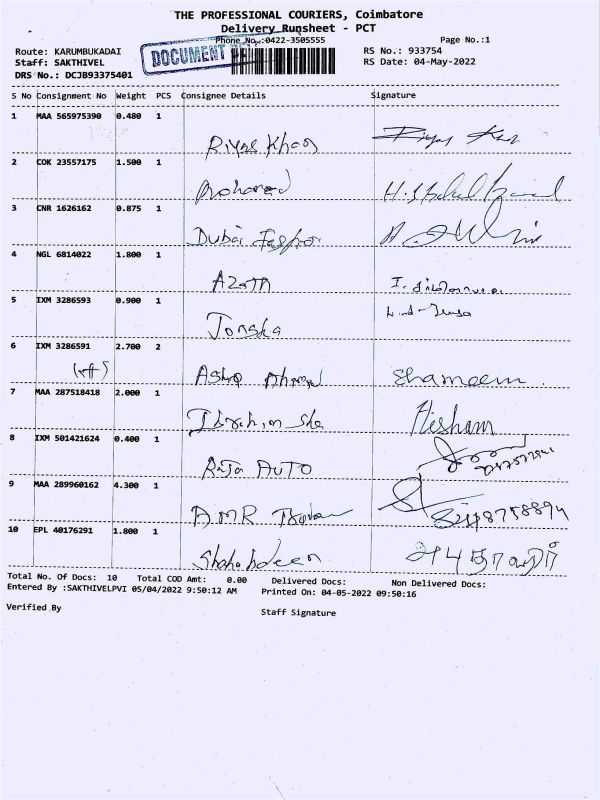 THE PROFESSIONAL COURIERS, Coimbatore
Delivery Runsheet - PCT
Phone No.:0422-3505555
Page No.:1
Route: KARUMBUKADAI
RS No.: 933754
Staff: SAKTHIVEL
DOCUMENT
RS Date: 04-May-2022
DRS No.: DCJB93375401
S No Consignment No Weight PCS Consignee Details Signature
1 MAA 565975390 0.480 1
Riyas Khan
2 COK 23557175 1.500 1
Mohamed
3 CNR 1626162 0.875 1
Dubai
4 NGL 6814022 1.800 1
5 IXM 3286593 0.900 1
6 IXM 3286591 2.700 2
Shameem
7 MAA 287518418 2.000 1
Ibrahim Sha Hisham
8 IXM 501421624 0.400 1
Raja AUTO
9 MAA 289960162 4.300 1
AMR
10 EPL 40176291 1.800 1
Shahabdeen
Total No. Of Docs: 10 Total COD Amt: 0.00 Delivered Docs: Non Delivered Docs:
Entered By :SAKTHIVELPVI 05/04/2022 9:50:12 AM Printed On: 04-05-2022 09:50:16
Verified By
Staff Signature